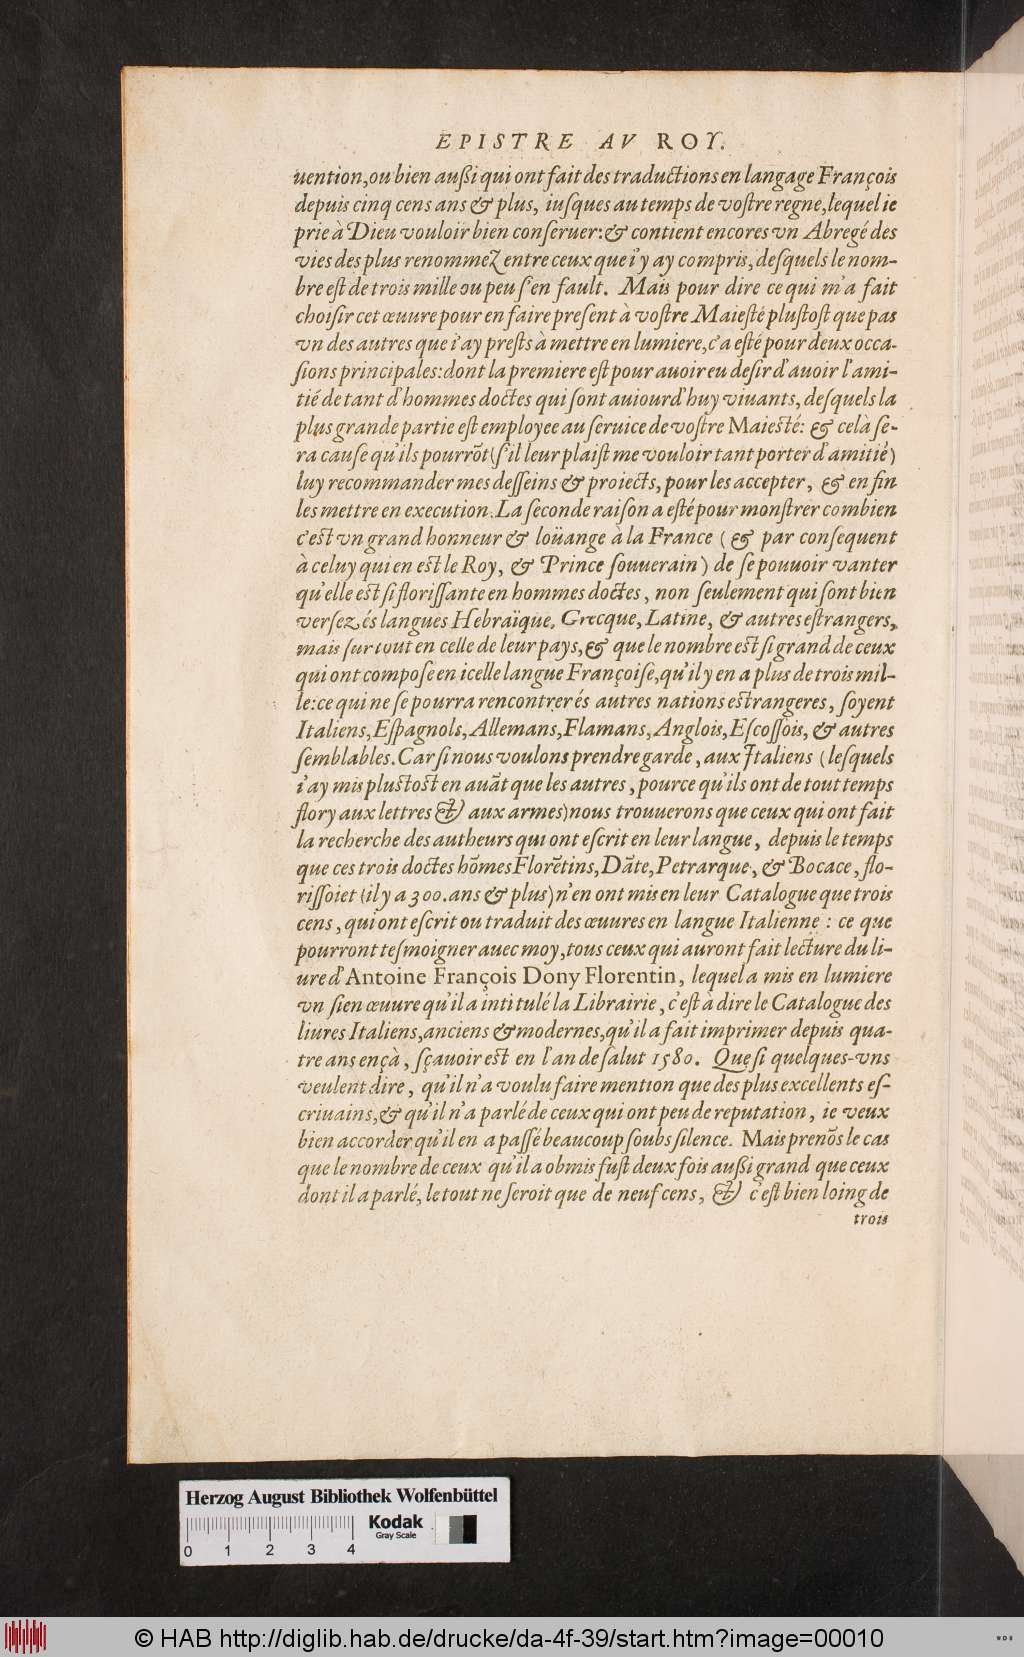 EPISTRE AV ROY.
uention, ou bien außi qui ont fait des traductions en langage François
depuis cinq cens ans & plus, iusques au temps de vostre regne, lequel ie
prie à Dieu vouloir bien conseruer: & contient encores vn Abregé des
vies des plus renommez entre ceux que i'y ay compris, desquels le nom-
bre est de trois mille ou peu s'en fault. Mais pour dire ce qui m'a fait
choisir cet œuure pour en faire present à vostre Maiesté plustost que pas
vn des autres que i'ay prests à mettre en lumiere, c'a esté pour deux occa-
sions principales: dont la premiere est pour auoir eu desir d'auoir l'ami-
tié de tant d'hommes doctes qui sont auiourd'huy viuants, desquels la
plus grande partie est employee au seruice de vostre Maiesté: & celà se-
ra cause qu'ils pourrõt (s'il leur plaist me vouloir tant porter d'amitié)
luy recommander mes desseins & proiects, pour les accepter, & en fin
les mettre en execution. La seconde raison a esté pour monstrer combien
c'est vn grand honneur & loüange à la France (& par consequent
à celuy qui en est le Roy, & Prince souuerain) de se pouuoir vanter
qu'elle est si florissante en hommes doctes, non seulement qui sont bien
versez és langues Hebraïque, Grecque, Latine, & autres estrangers,
mais sur tout en celle de leur pays, & que le nombre est si grand de ceux
qui ont composé en icelle langue Françoise, qu'il y en a plus de trois mil-
le: ce qui ne se pourra rencontrer és autres nations estrangeres, soyent
Italiens, Espagnols, Allemans, Flamans, Anglois, Escossois, & autres
semblables. Car si nous voulons prendre garde, aux Italiens (lesquels
i'ay mis plustost en auãt que les autres, pource qu'ils ont de tout temps
flory aux lettres & aux armes) nous trouuerons que ceux qui ont fait
la recherche des autheurs qui ont escrit en leur langue, depuis le temps
que ces trois doctes hõmes Florẽtins, Dãte, Petrarque, & Bocace, flo-
rissoiẽt (il y a 300. ans & plus) n'en ont mis en leur Catalogue que trois
cens, qui ont escrit ou traduit des œuures en langue Italienne: ce que
pourront tesmoigner auec moy, tous ceux qui auront fait lecture du li-
ure d'Antoine François Dony Florentin, lequel a mis en lumiere
vn sien œuure qu'il a intitulé la Librairie, c'est à dire le Catalogue des
liures Italiens, anciens & modernes, qu'il a fait imprimer depuis qua-
tre ans ençà, sçauoir est en l'an de salut 1580. Que si quelques-vns
veulent dire, qu'il n'a voulu faire mention que des plus excellents es-
criuains, & qu'il n'a parlé de ceux qui ont peu de reputation, ie veux
bien accorder qu'il en a passé beaucoup soubs silence. Mais prenõs le cas
que le nombre de ceux qu'il a obmis fust deux fois außi grand que ceux
dont il a parlé, le tout ne seroit que de neuf cens, & c'est bien loing de
trois
Herzog August Bibliothek Wolfenbüttel
Kodak
Gray Scale
0 1 2 3 4
© HAB http://diglib.hab.de/drucke/da-4f-39/start.htm?image=00010